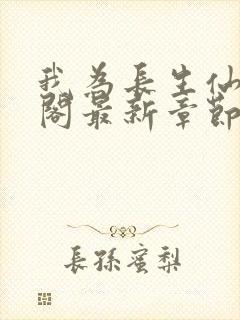 我为長生仙
閣最新章節
長孫蜜梨